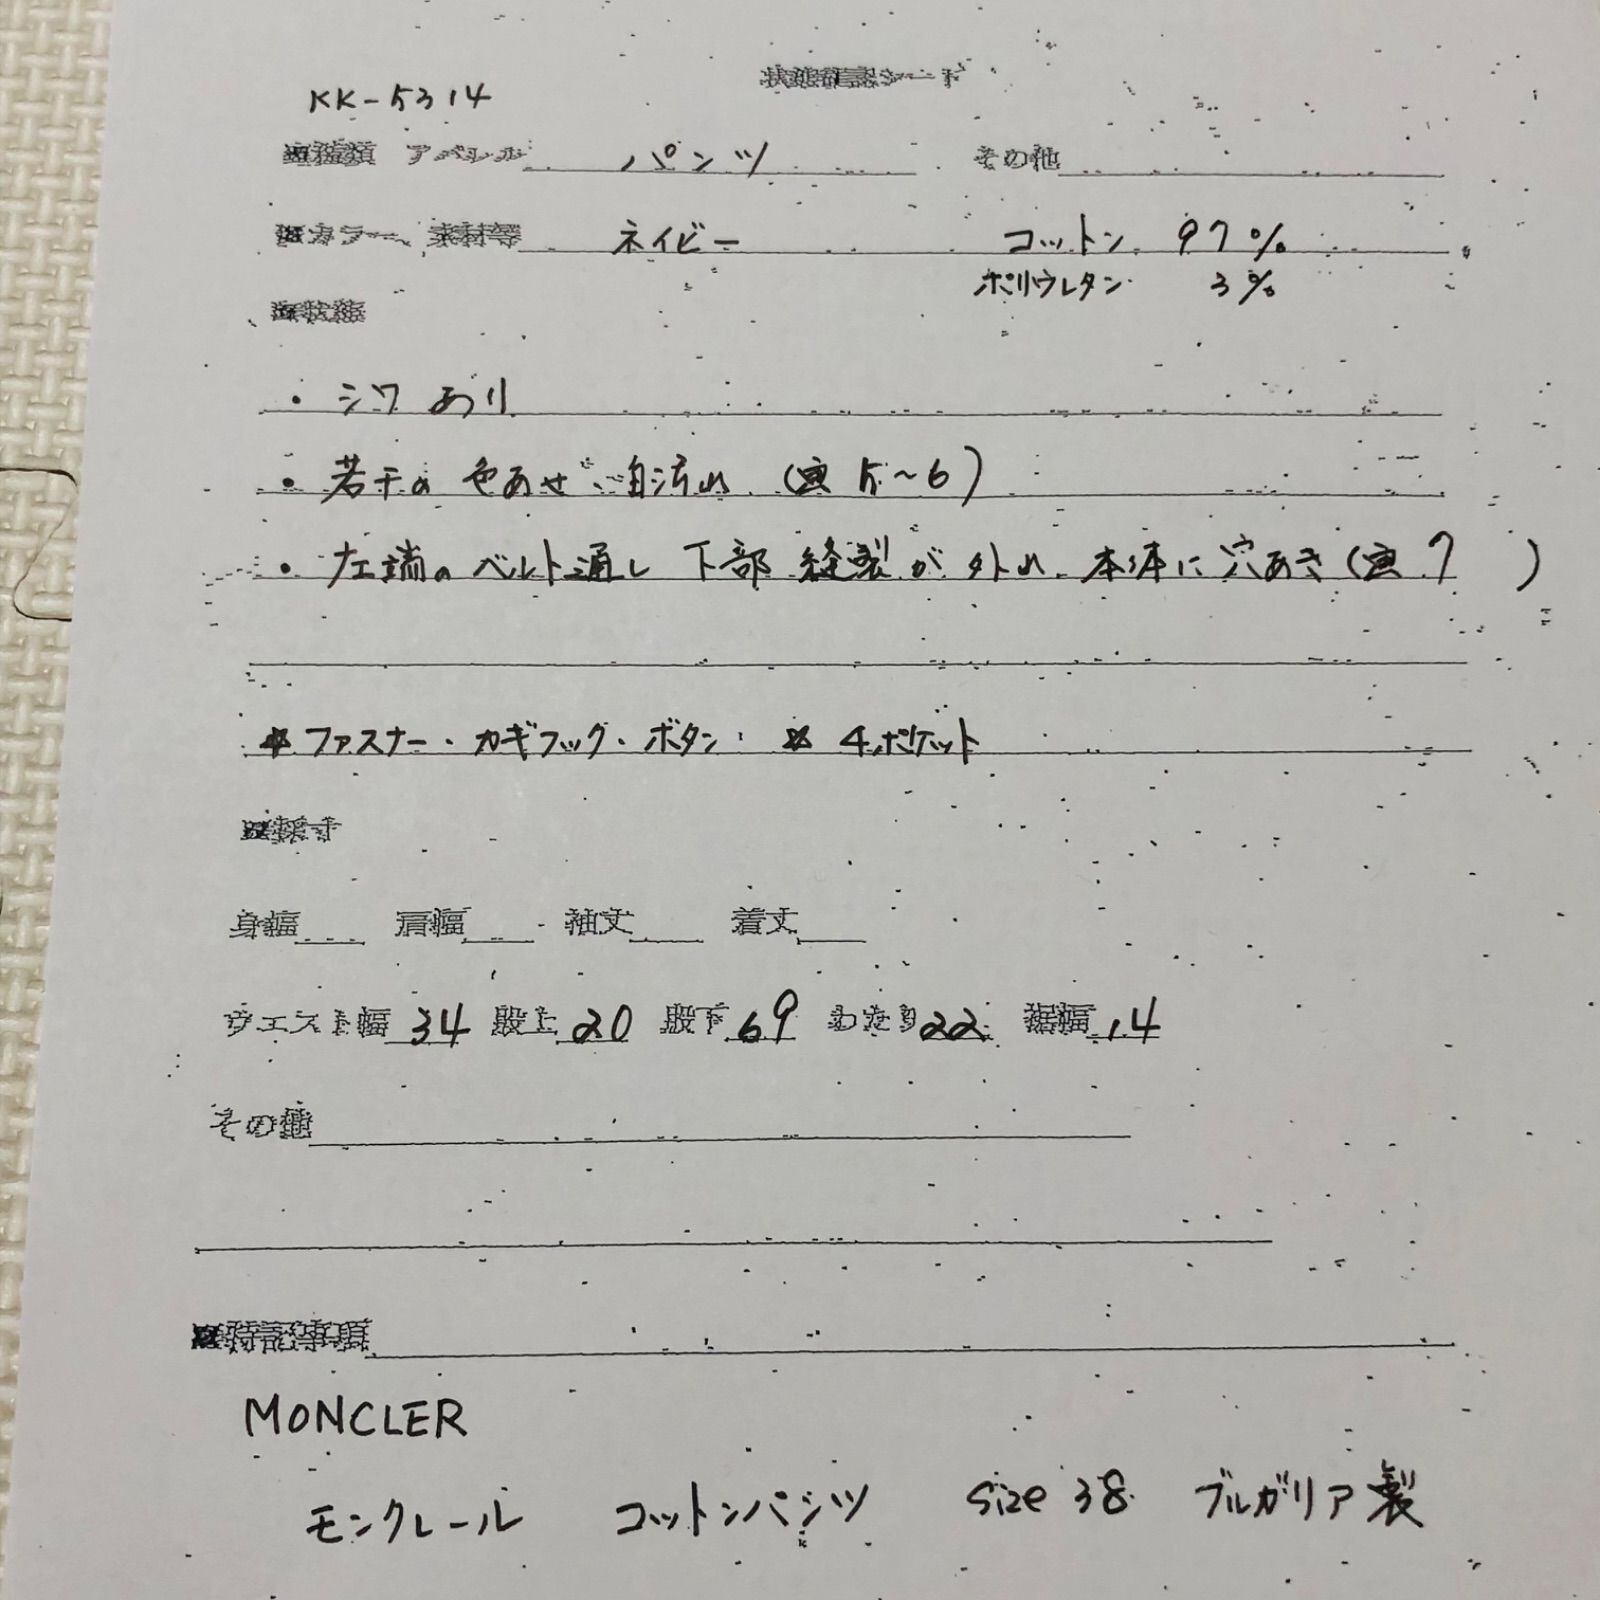 状態確認シート
KK-5314
■種類 アパレル パンツ その他
■カラー、素材等 ネイビー コットン 97%
ポリウレタン 3%
■状態
・シワ あり
・若干の 色あせ、白汚れ (画 5~6)
・左端の ベルト通し 下部 縫製が 外れ 本体に 穴あき (画 7 )
☆ ファスナー・カギフック・ボタン ☆ 4ポケット
■採寸
身幅 肩幅 袖丈 着丈
ウエスト幅 34 股上 20 股下 69 わたり 22 裾幅 14
その他
■特記事項
MONCLER
モンクレール コットンパンツ size 38 ブルガリア製